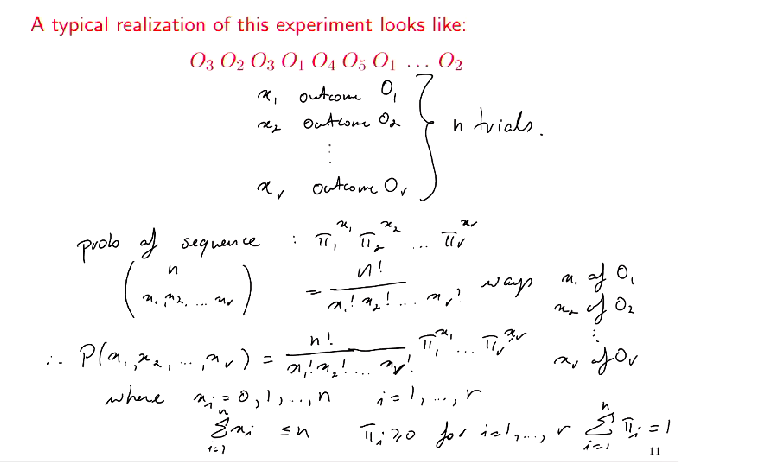 A typical realization of this experiment looks like:
O₃ O₂ O₃ O₁ O₄ O₅ O₁ … O₂
x₁ outcome O₁
x₂ outcome O₂ } n trials.
⋮
xᵣ outcome Oᵣ
prob of sequence : π₁^x₁ π₂^x₂ … πᵣ^xᵣ
(n over x₁, x₂, … xᵣ) = n! / (x₁! x₂! … xᵣ!) ways x₁ of O₁
x₂ of O₂
⋮
∴ P(x₁, x₂, …, xᵣ) = n! / (x₁! x₂! … xᵣ!) π₁^x₁ … πᵣ^xᵣ xᵣ of Oᵣ
where xᵢ = 0, 1, …, n i = 1, …, r
∑ᵢ₌₁ⁿ xᵢ ≤ n πᵢ ≥ 0 for i=1, …, r ∑ᵢ₌₁ⁿ πᵢ = 1
11